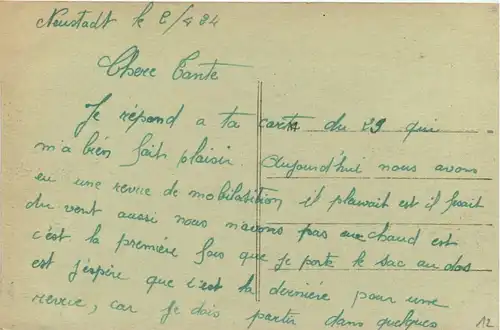 Neustadt le 2/4 24
Chere Tante
Je répond a ta carte du 29 qui
m'a bien fait plaisir. Aujourd'hui nous avons
eu une revue de mobilisation il pleuvait est il fesait
du vent aussi nous n'avons pas eu chaud est
c'est la première fois que je porte le sac au dos
est j'espère que c'est la dernière pour une
revue, car je dois partir dans quelques
12